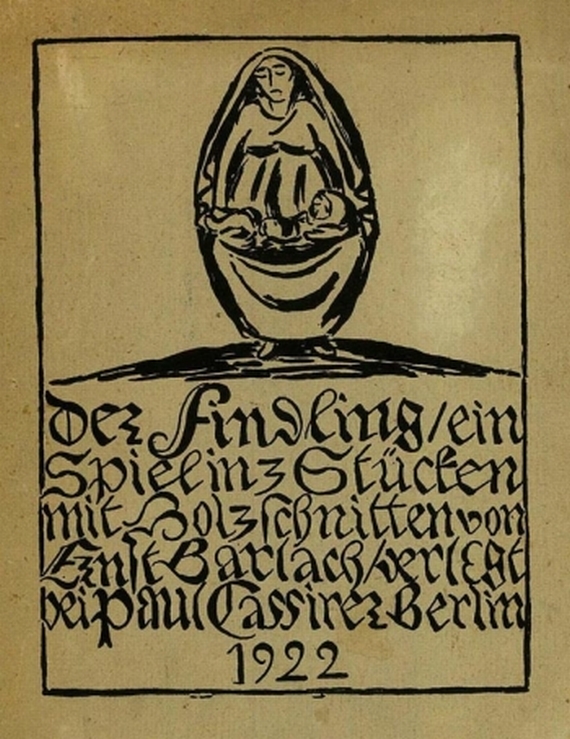 Der Findling / ein
Spiel in 3 Stücken
mit Holzschnitten von
Ernst Barlach / verlegt
bei Paul Cassirer Berlin
1922